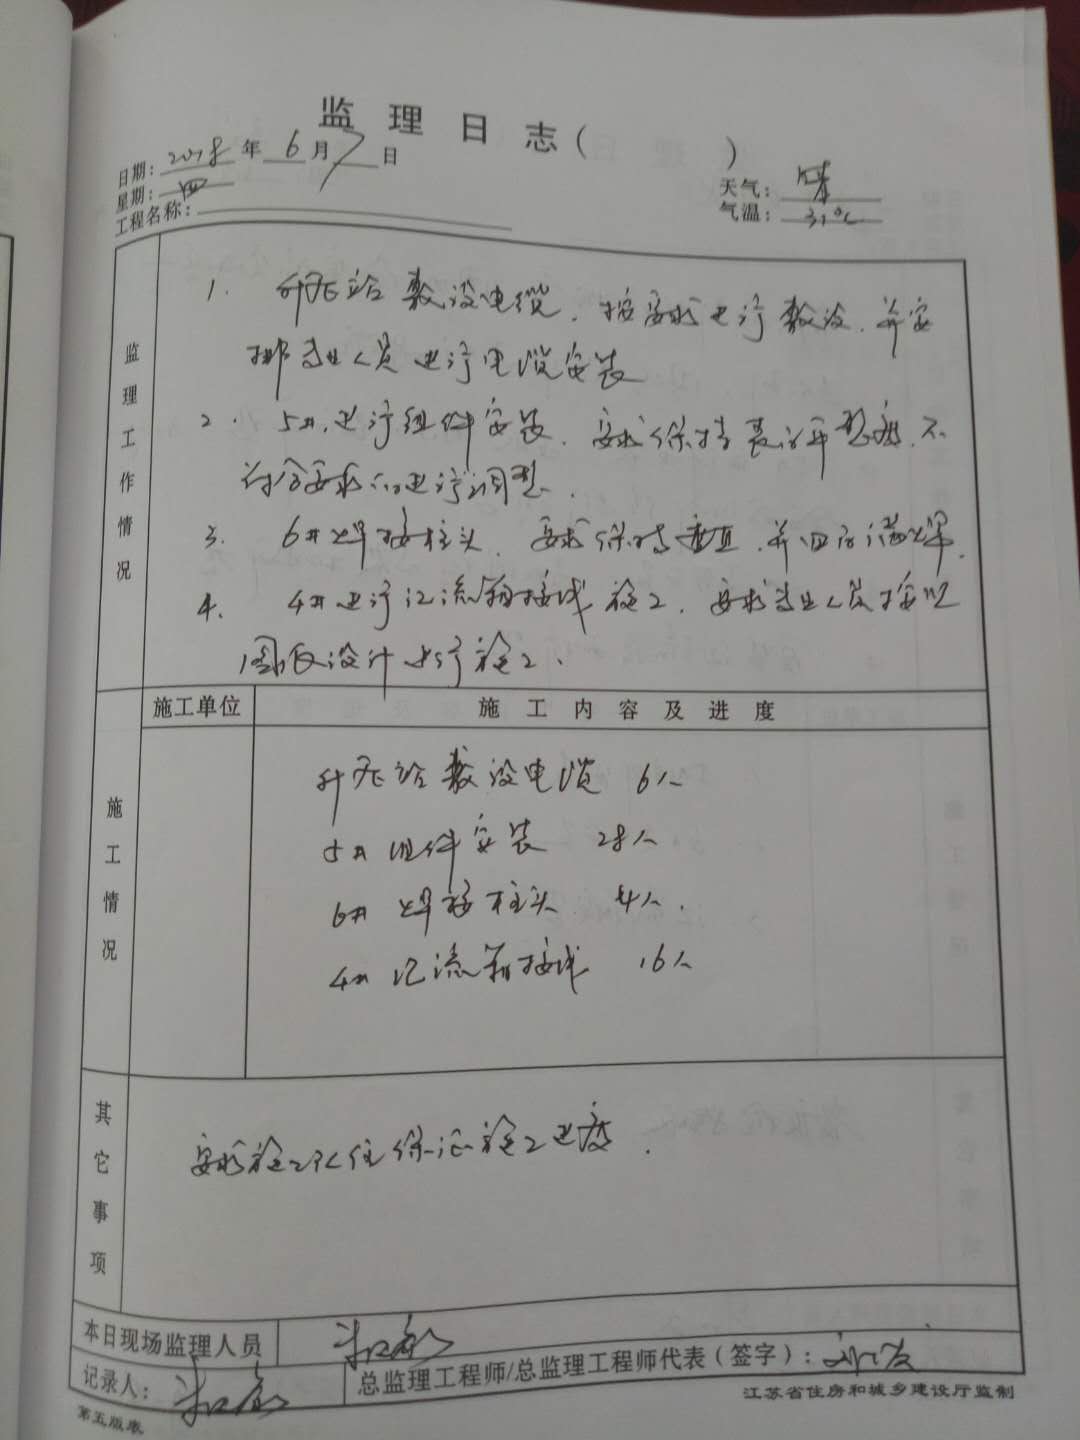 监理日志( )
日期：2018年6月7日
星期：四
天气：晴
工程名称：
气温：31℃
监理工作情况
1. 升压站敷设电缆，按要求进行敷设，并安
排专业人员进行电缆安装
2. 5#，进行组件安装，要求保持表面平整度，不
符合要求的进行调整．
3. 6#焊接柱头，要求保持垂直，并四面满焊．
4. 4#进行汇流箱接线施工，要求专业人员按照
图纸设计进行施工．
施工情况
施工单位
施工内容及进度
升压站敷设电缆 6人
5#组件安装 28人
6#焊接柱头 4人．
4#汇流箱接线 16人
其它事项
要求施工单位保证施工进度．
本日现场监理人员
记录人：
总监理工程师/总监理工程师代表（签字）：
江苏省住房和城乡建设厅监制
第五版表